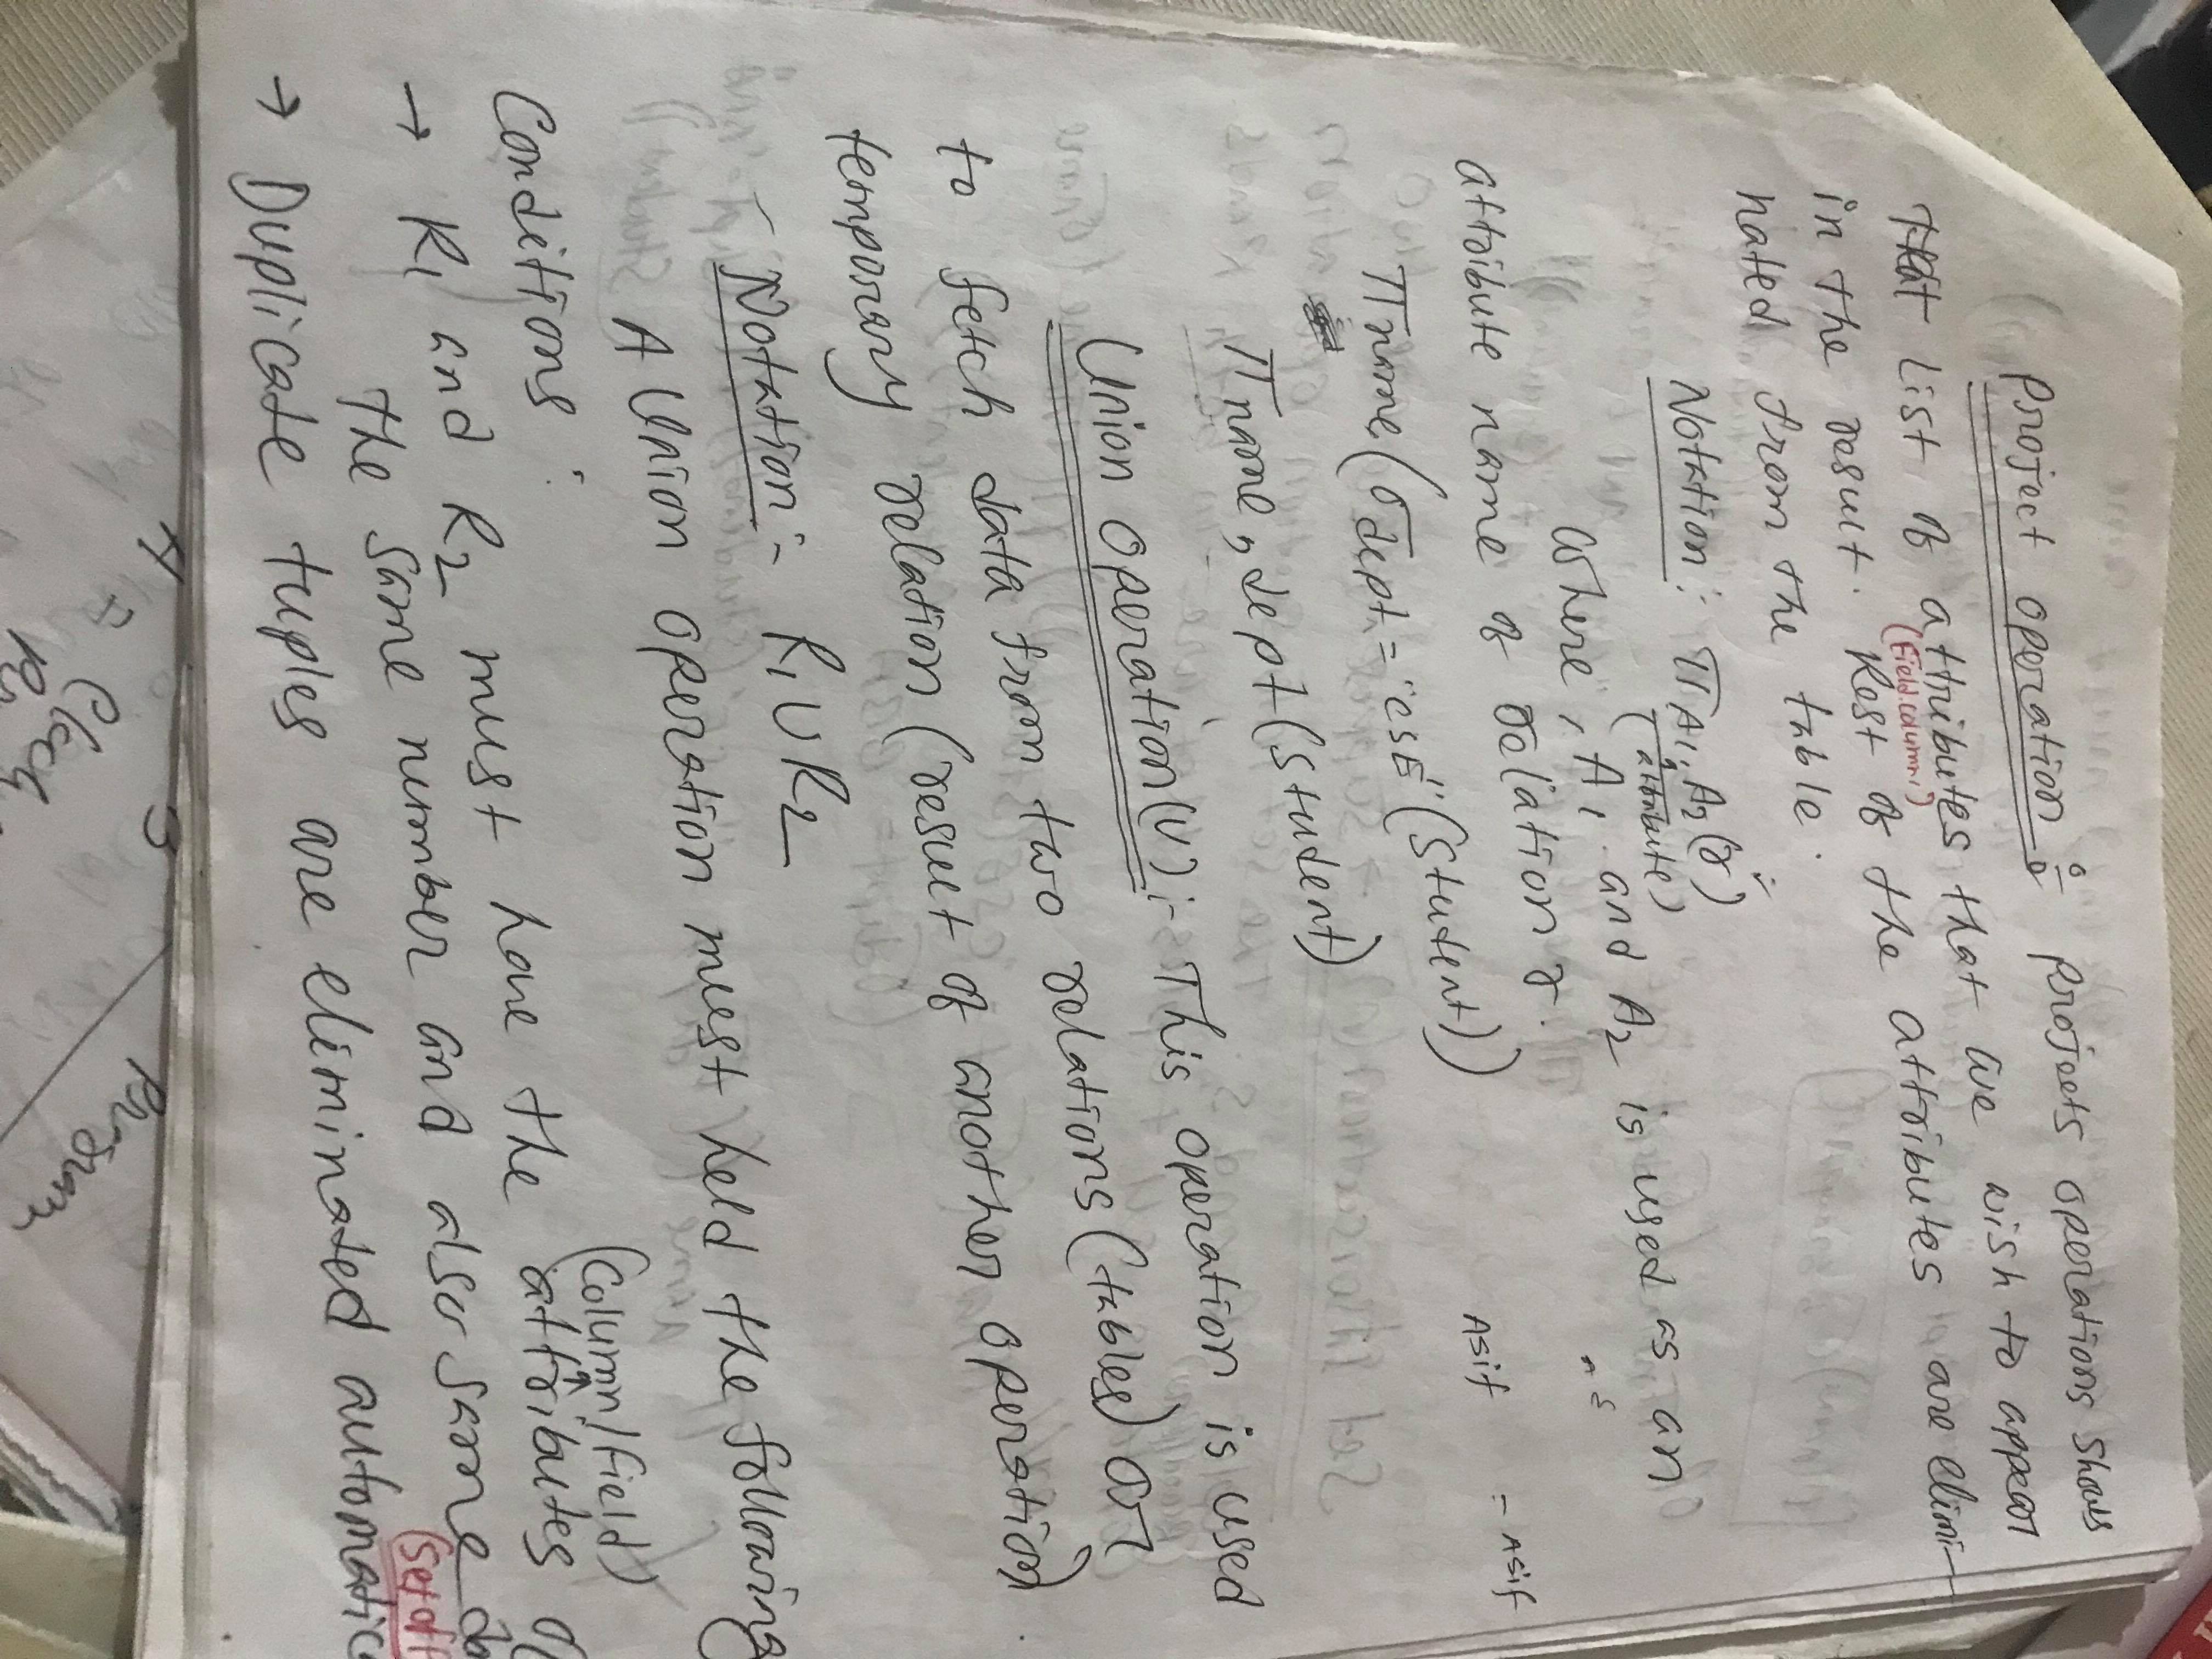 Project operation : Projects operations shows
that List of attributes that we wish to appear
(Field.column,)
in the result. Rest of the attributes are elimi-
nated from the table.
Notation: π A1, A2 (r)
(attribute)
Where, A1 and A2 is used as an
attribute name of relation r.
Asif - Asif
π name (σ dept = "CSE" (Student))
π name, dept (Student)
Union operation (U) :- This operation is used
to fetch data from two relations (tables) or
temporary relation (result of another operation)
- Notation :- R1 U R2
A Union operation must held the following
(Column/field)
Conditions :
→ R1 and R2 must have the attributes of
the same number and also same do
(Set of
→ Duplicate tuples are eliminated automatic
A
Program
Clock